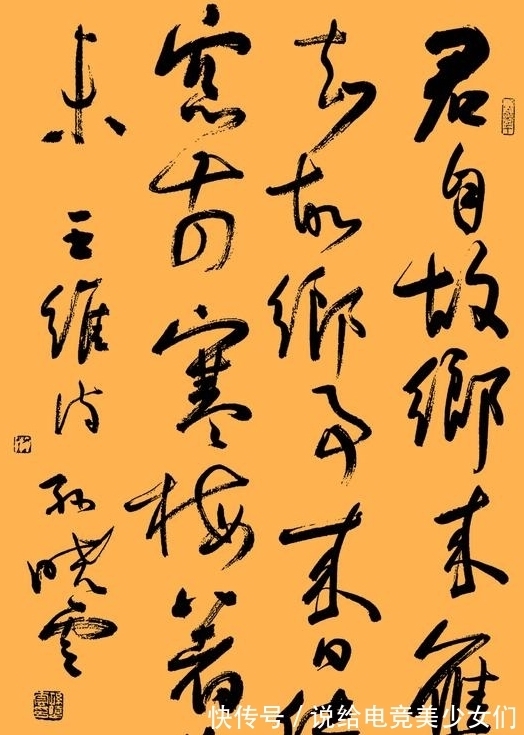 君自故鄉来應
知故鄉事来日綺
窓前寒梅著
未 王維诗 孙曉雲
快传号 / 说给电竞美少女们